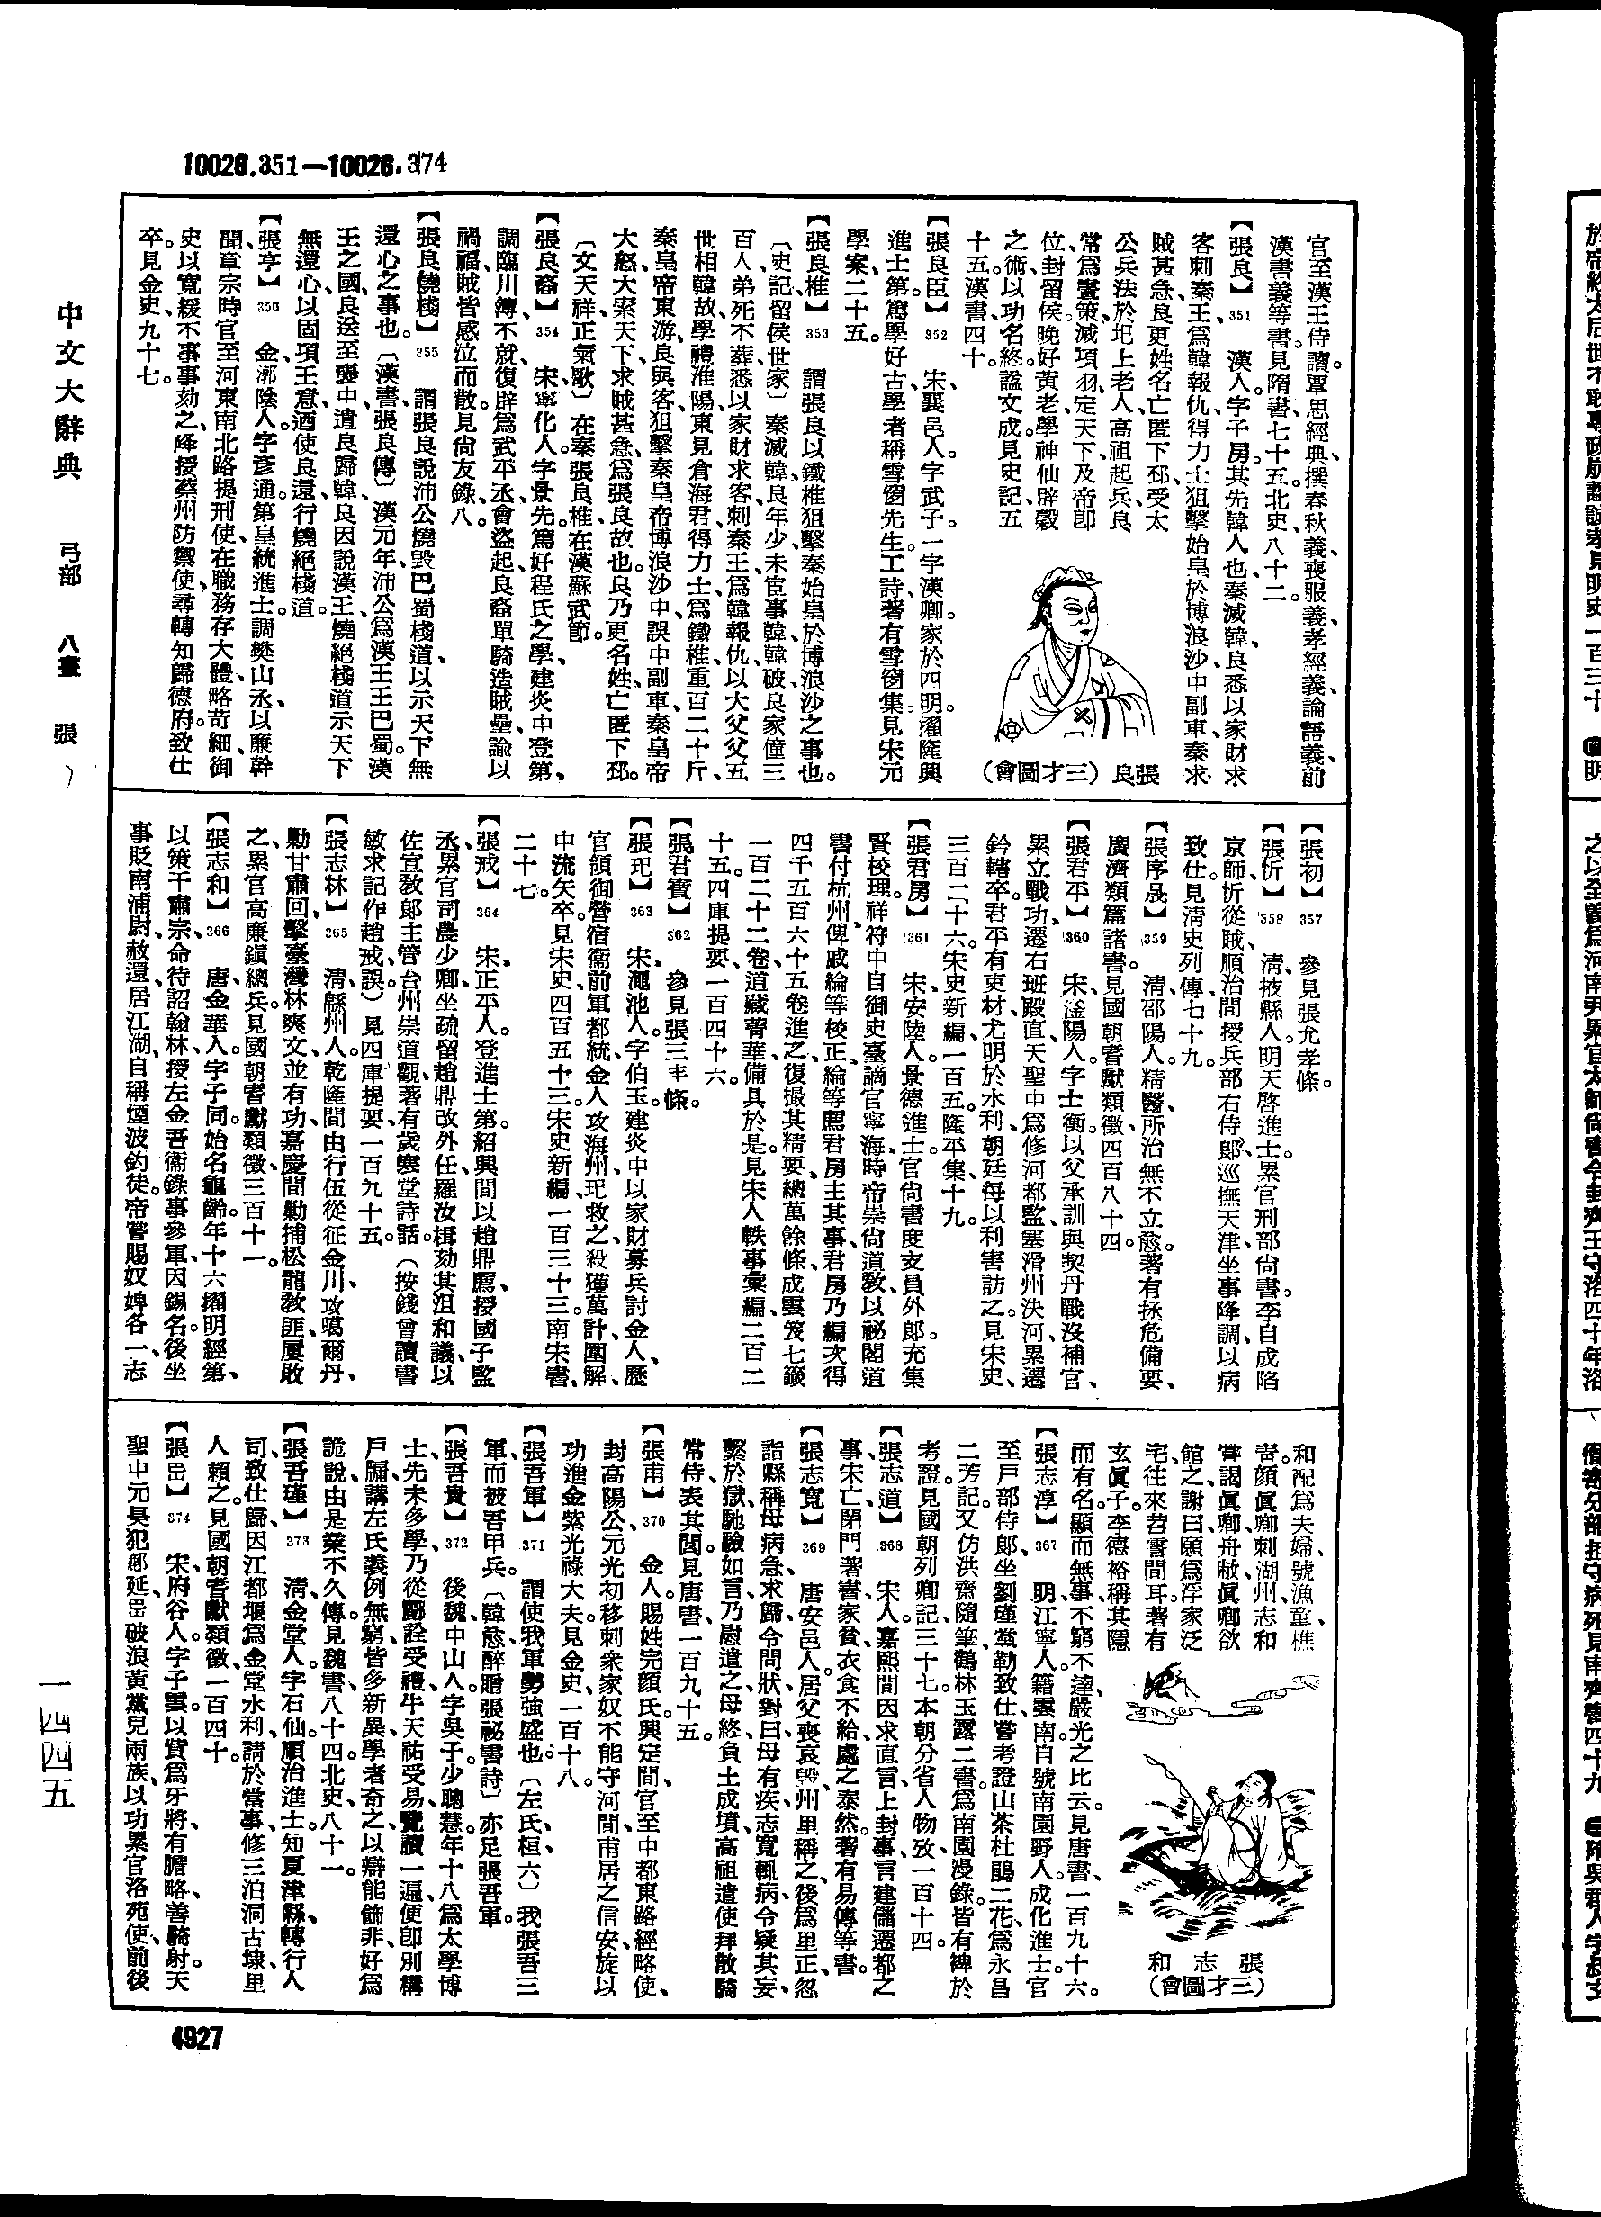 10026.351—10026.374
官至漢王侍讀。覃思經典、撰春秋義、喪服義、孝經義、論語義、前
漢書義等書。見隋書、七十五、北史、八十二。
【張良】351 漢人。字子房。其先韓人也、秦滅韓、良悉以家財求
客刺秦王、爲韓報仇、得力士、狙擊始皇於博浪沙中副車、秦求
賊甚急、良更姓名、亡匿下邳、受太
公兵法於圯上老人、高祖起兵、良
常爲畫策、滅項羽、定天下、及帝卽
位、封留侯、晚好黃老、學神仙辟穀
之術、以功名終。謚文成。見史記、五
十五。漢書、四十。
張良（三才圖會）
【張良臣】352 宋、襄邑人。字武子。一字漢卿。家於四明。擢隆興
進士第、篤學好古、學者稱雪窗先生。工詩、著有雪窗集。見宋元
學案、二十五。
【張良椎】353 謂張良以鐵椎狙擊秦始皇於博浪沙之事也。
〔史記、留侯世家〕秦滅韓、良年少、未宦事韓、韓破、良家僮三
百人、弟死不葬、悉以家財求客刺秦王、爲韓報仇、以大父、父五
世相韓故、學禮淮陽、東見倉海君、得力士、爲鐵椎重百二十斤、
秦皇帝東游、良與客狙擊秦皇帝博浪沙中、誤中副車、秦皇帝
大怒、大索天下、求賊甚急、爲張良故也、良乃更名姓、亡匿下邳。
〔文天祥、正氣歌〕在秦張良椎、在漢蘇武節。
【張良裔】354 宋、寧化人。字景先。篤好程氏之學、建炎中登第、
調臨川簿、不就、復辟爲武平丞、會盜起、良裔單騎造賊壘、諭以
禍福、賊皆感泣而散。見尙友錄、八。
【張良燒棧】355 謂張良說沛公燒毀巴蜀棧道、以示天下無
還心之事也。〔漢書、張良傳〕漢元年、沛公爲漢王、王巴蜀。漢
王之國、良送至褒中、遣良歸韓、良因說漢王、燒絕棧道、示天下
無還心、以固項王意、迺使良還、行燒絕棧道。
【張亨】356 金、漷陰人。字彥通。第皇統進士、調樊山丞、以廉幹
聞、章宗時、官至河東南北路提刑使、在職務存大體、略苛細、御
史以寬緩不事事劾之、降授蔡州防禦使、尋轉知歸德府。致仕
卒。見金史、九十七。
【張初】357 參見張允孝條。
【張忻】358 清、掖縣人。明天啓進士、累官刑部尙書。李自成陷
京師、忻從賊、順治間、授兵部右侍郞、巡撫天津、坐事降調、以病
致仕。見淸史列傳、七十九。
【張序晟】359 清、邵陽人。精醫、所治無不立愈。著有拯危備要、
廣濟類篇諸書。見國朝耆獻類徵、四百八十四。
【張君平】360 宋、滏陽人。字士衡。以父承訓與契丹戰沒補官、
累立戰功、遷右班殿直、天聖中、爲修河都監、塞滑州決河、累遷
鈐轄卒。君平有吏材、尤明於水利、朝廷每以利害訪之。見宋史、
三百二十六。宋史新編、一百五。隆平集、十九。
【張君房】361 宋、安陸人。景德進士。官尙書度支員外郎。充集
賢校理。祥符中、自御史臺謫官寧海、時帝崇尙道教、以祕閣道
書付杭州、俾戚綸等校正、綸等薦君房主其事、君房乃編次得
四千五百六十五卷進之、復撮其精要、總萬餘條、成雲笈七籤
一百二十二卷、道藏菁華、備具於是。見宋人軼事彙編、二百二
十五。四庫提要、一百四十六。
【張君寶】362 參見張三丰條。
【張玘】363 宋、澠池人。字伯玉。建炎中、以家財募兵討金人、歷
官領御營宿衞前軍都統、金人攻海州、玘救之、殺獲萬計、圍解、
中流矢卒。見宋史、四百五十三。宋史新編、一百三十三。南宋書、
二十七。
【張戒】364 宋、正平人。登進士第。紹興間、以趙鼎薦、授國子監
丞、累官司農少卿、坐疏留趙鼎、改外任、羅汝楫劾其沮和議、以
佐宣敎郞主管台州崇道觀、著有歲寒堂詩話。（按錢曾讀書
敏求記作趙戒、誤）見四庫提要、一百九十五。
【張志林】365 清、縣州人。乾隆間、由行伍從征金川、攻噶爾丹、
勦甘肅回、擊臺灣林爽文、並有功、嘉慶間、勦捕松龍敎匪、屢敗
之、累官高廉鎭總兵。見國朝耆獻類徵、三百十一。
【張志和】366 唐、金華人。字子同。始名龜齡。年十六、擢明經第、
以策干肅宗、命待詔翰林、授左金吾衞錄事參軍、因錫名。後坐
事貶南浦尉、赦還、居江湖、自稱煙波釣徒。帝嘗賜奴婢各一、志
和配爲夫婦、號漁童、樵
青。顏眞卿刺湖州、志和
嘗謁、眞卿舟敝、眞卿欲
館之、謝曰、願爲浮家泛
宅、往來苕霅間耳。著有
玄眞子。李德裕稱其隱
而有名、顯而無事、不窮不達、嚴光之比云。見唐書、一百九十六。
張志和
（三才圖會）
【張志淳】367 明、江寧人。籍雲南。自號南園野人。成化進士、官
至戶部侍郞、坐劉瑾黨、勒致仕、嘗考證山茶杜鵑二花、爲永昌
二芳記。又仿洪齋隨筆、鶴林玉露二書、爲南園漫錄、皆有裨於
考證。見國朝列卿記、三十七。本朝分省人物攷、一百十四。
【張志道】368 宋人。嘉熙間、因求直言、上封事、言建儲遷都之
事、宋亡、閉門著書、家貧、衣食不給、處之泰然。著有易傳等書。
【張志寬】369 唐、安邑人。居父喪哀毀、州里稱之、後爲里正、忽
詣縣稱母病急求歸、令問狀、對曰、母有疾、志寬輒病、令疑其妄、
繫於獄、馳驗如言、乃慰遣之、母終、負土成墳、高祖遣使拜散騎
常侍、表其閭。見唐書、一百九十五。
【張甫】370 金人。賜姓完顏氏。興定間、官至中都東路經略使、
封高陽公、元光初、移刺衆家奴不能守河間、甫居之信安、旋以
功進金紫光祿大夫。見金史、一百十八。
【張吾軍】371 謂使我軍勢強盛也。〔左氏、桓、六〕我張吾三
軍而被吾甲兵。〔韓愈、醉贈張祕書詩〕亦足張吾軍。
【張吾貴】372 後魏、中山人。字吳子。少聰慧、年十八、爲太學博
士、先未多學、乃從酈詮受禮、牛天祐受易、覽讀一遍、便卽別構
戶牖、講左氏義例無窮、皆多新異、學者奇之、以辯能飾非、好爲
詭說、由是業不久傳。見魏書、八十四、北史、八十一。
【張吾瑾】373 清、金堂人。字石仙。順治進士、知夏津縣、轉行人
司、致仕歸、因江都堰爲金堂水利、請於當事、修三泊洞古埭、里
人賴之。見國朝耆獻類徵、一百四十。
【張岊】374 宋、府谷人。字子雲。以貲爲牙將、有膽略、善騎射。天
聖中、元昊犯鄜延、岊破浪黃黨兒兩族、以功累官洛苑使、前後
中文大辭典 弓部 八畫 張
一四四五
4927